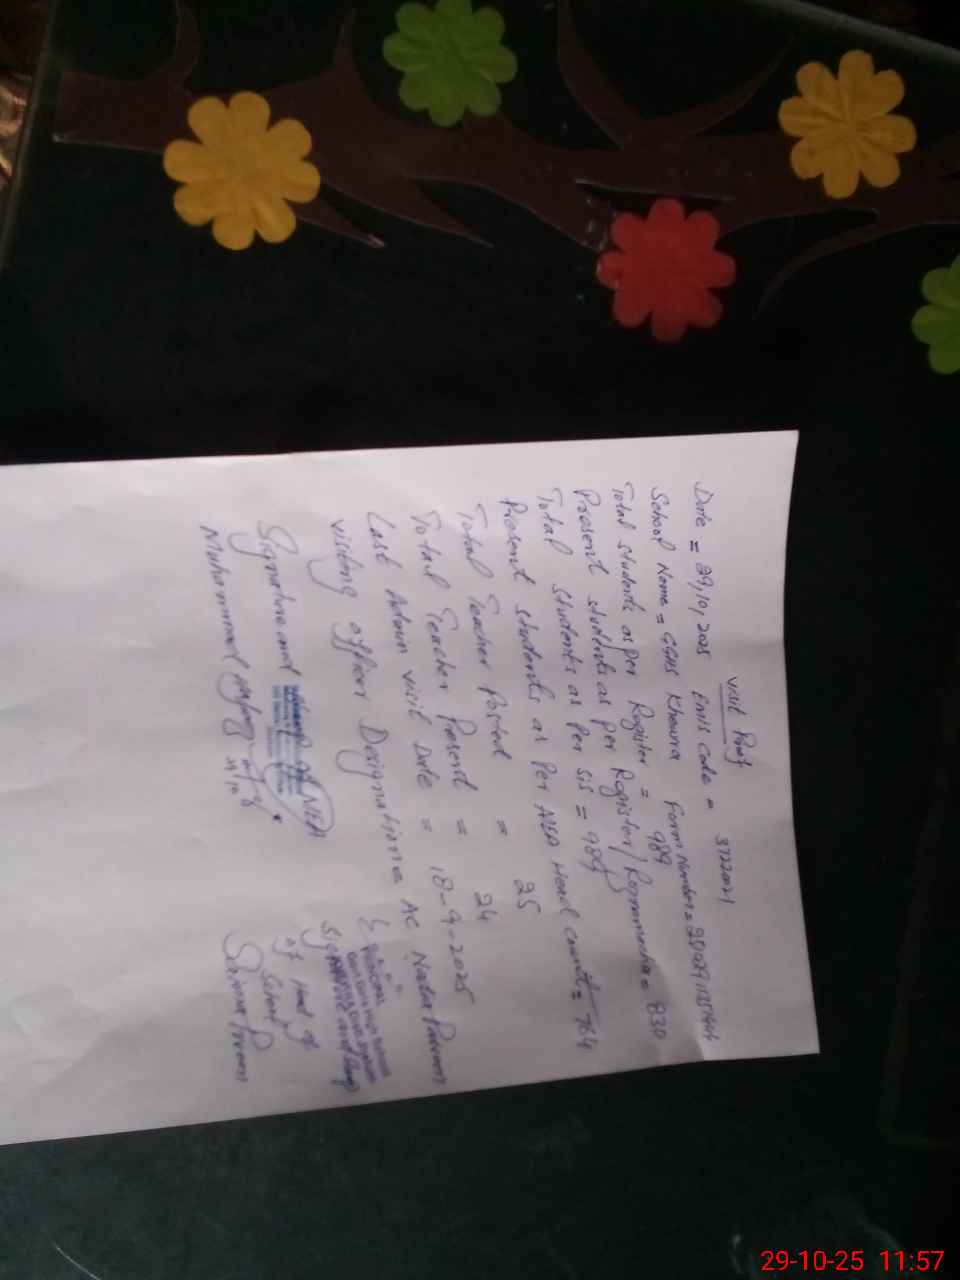 visit Proof
Date = 29,10,2025 Emis code = 37220071
School Name = GGHS Khaura form number =
Total students as per Register = 989
Present students as per Register/Roznamcha = 830
Total Students as per SIS = 989
Present students as Per MEA Head count = 764
Total Teacher Posted = 25
Total Teacher Present = 24
Last Admin visit Date = 18-9-2025
visiting officer Designation = AC Nadia Parveen
Signature and Stamp of MEA
Signature and Stamp
of Head of
School
Muhammad
Saima Parveen
29-10-25 11:57